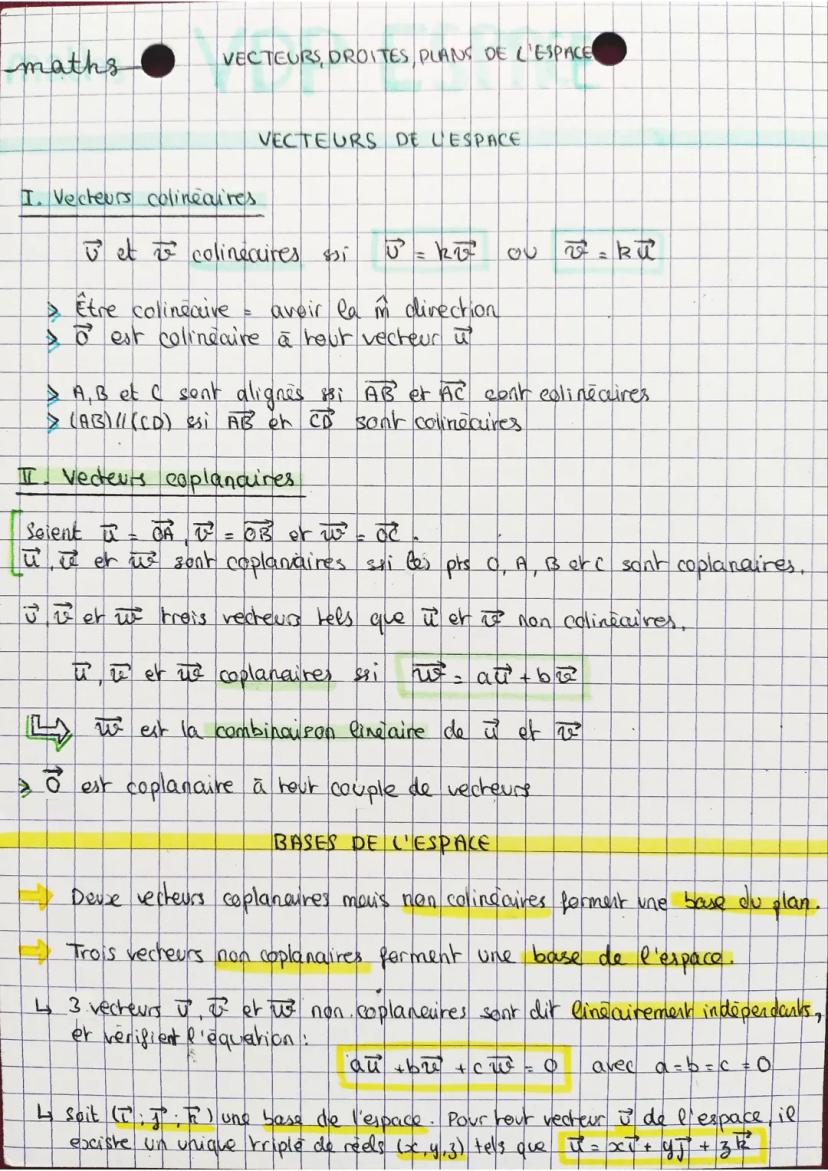 maths
VECTEURS, DROITES, PLANS DE L'ESPACE
VECTEURS DE L'ESPACE
I. Vecteurs colinéaires
u⃗ et v⃗ colinéaires ssi u⃗ = kv⃗ ou v⃗ = ku⃗
> Être colinéaire = avoir la m̂ direction
> 0⃗ est colinéaire à tout vecteur u⃗
> A, B et C sont alignés ssi AB⃗ et AC⃗ sont colinéaires
> (AB)//(CD) ssi AB⃗ et CD⃗ sont colinéaires
II. Vecteurs coplanaires
Soient u⃗ = OA⃗, v⃗ = OB⃗ et w⃗ = OC⃗.
u⃗, v⃗ et w⃗ sont coplanaires ssi les pts O, A, B et C sont coplanaires.
u⃗, v⃗ et w⃗ trois vecteurs tels que u⃗ et v⃗ non colinéaires.
u⃗, v⃗ et w⃗ coplanaires ssi w⃗ = au⃗ + bv⃗
w⃗ est la combinaison linéaire de u⃗ et v⃗
> 0⃗ est coplanaire à tout couple de vecteurs
BASES DE L'ESPACE
Deux vecteurs coplanaires mais non colinéaires forment une base du plan.
Trois vecteurs non coplanaires forment une base de l'espace.
↳ 3 vecteurs u⃗, v⃗ et w⃗ non coplanaires sont dit linéairement indépendants,
et vérifient l'équation :
au⃗ + bv⃗ + cw⃗ = 0 avec a = b = c = 0
↳ Soit (i⃗ ; j⃗ ; k⃗) une base de l'espace. Pour tout vecteur u⃗ de l'espace, il
existe un unique triplé de réels (x, y, z) tels que u⃗ = xi⃗ + yj⃗ + zk⃗